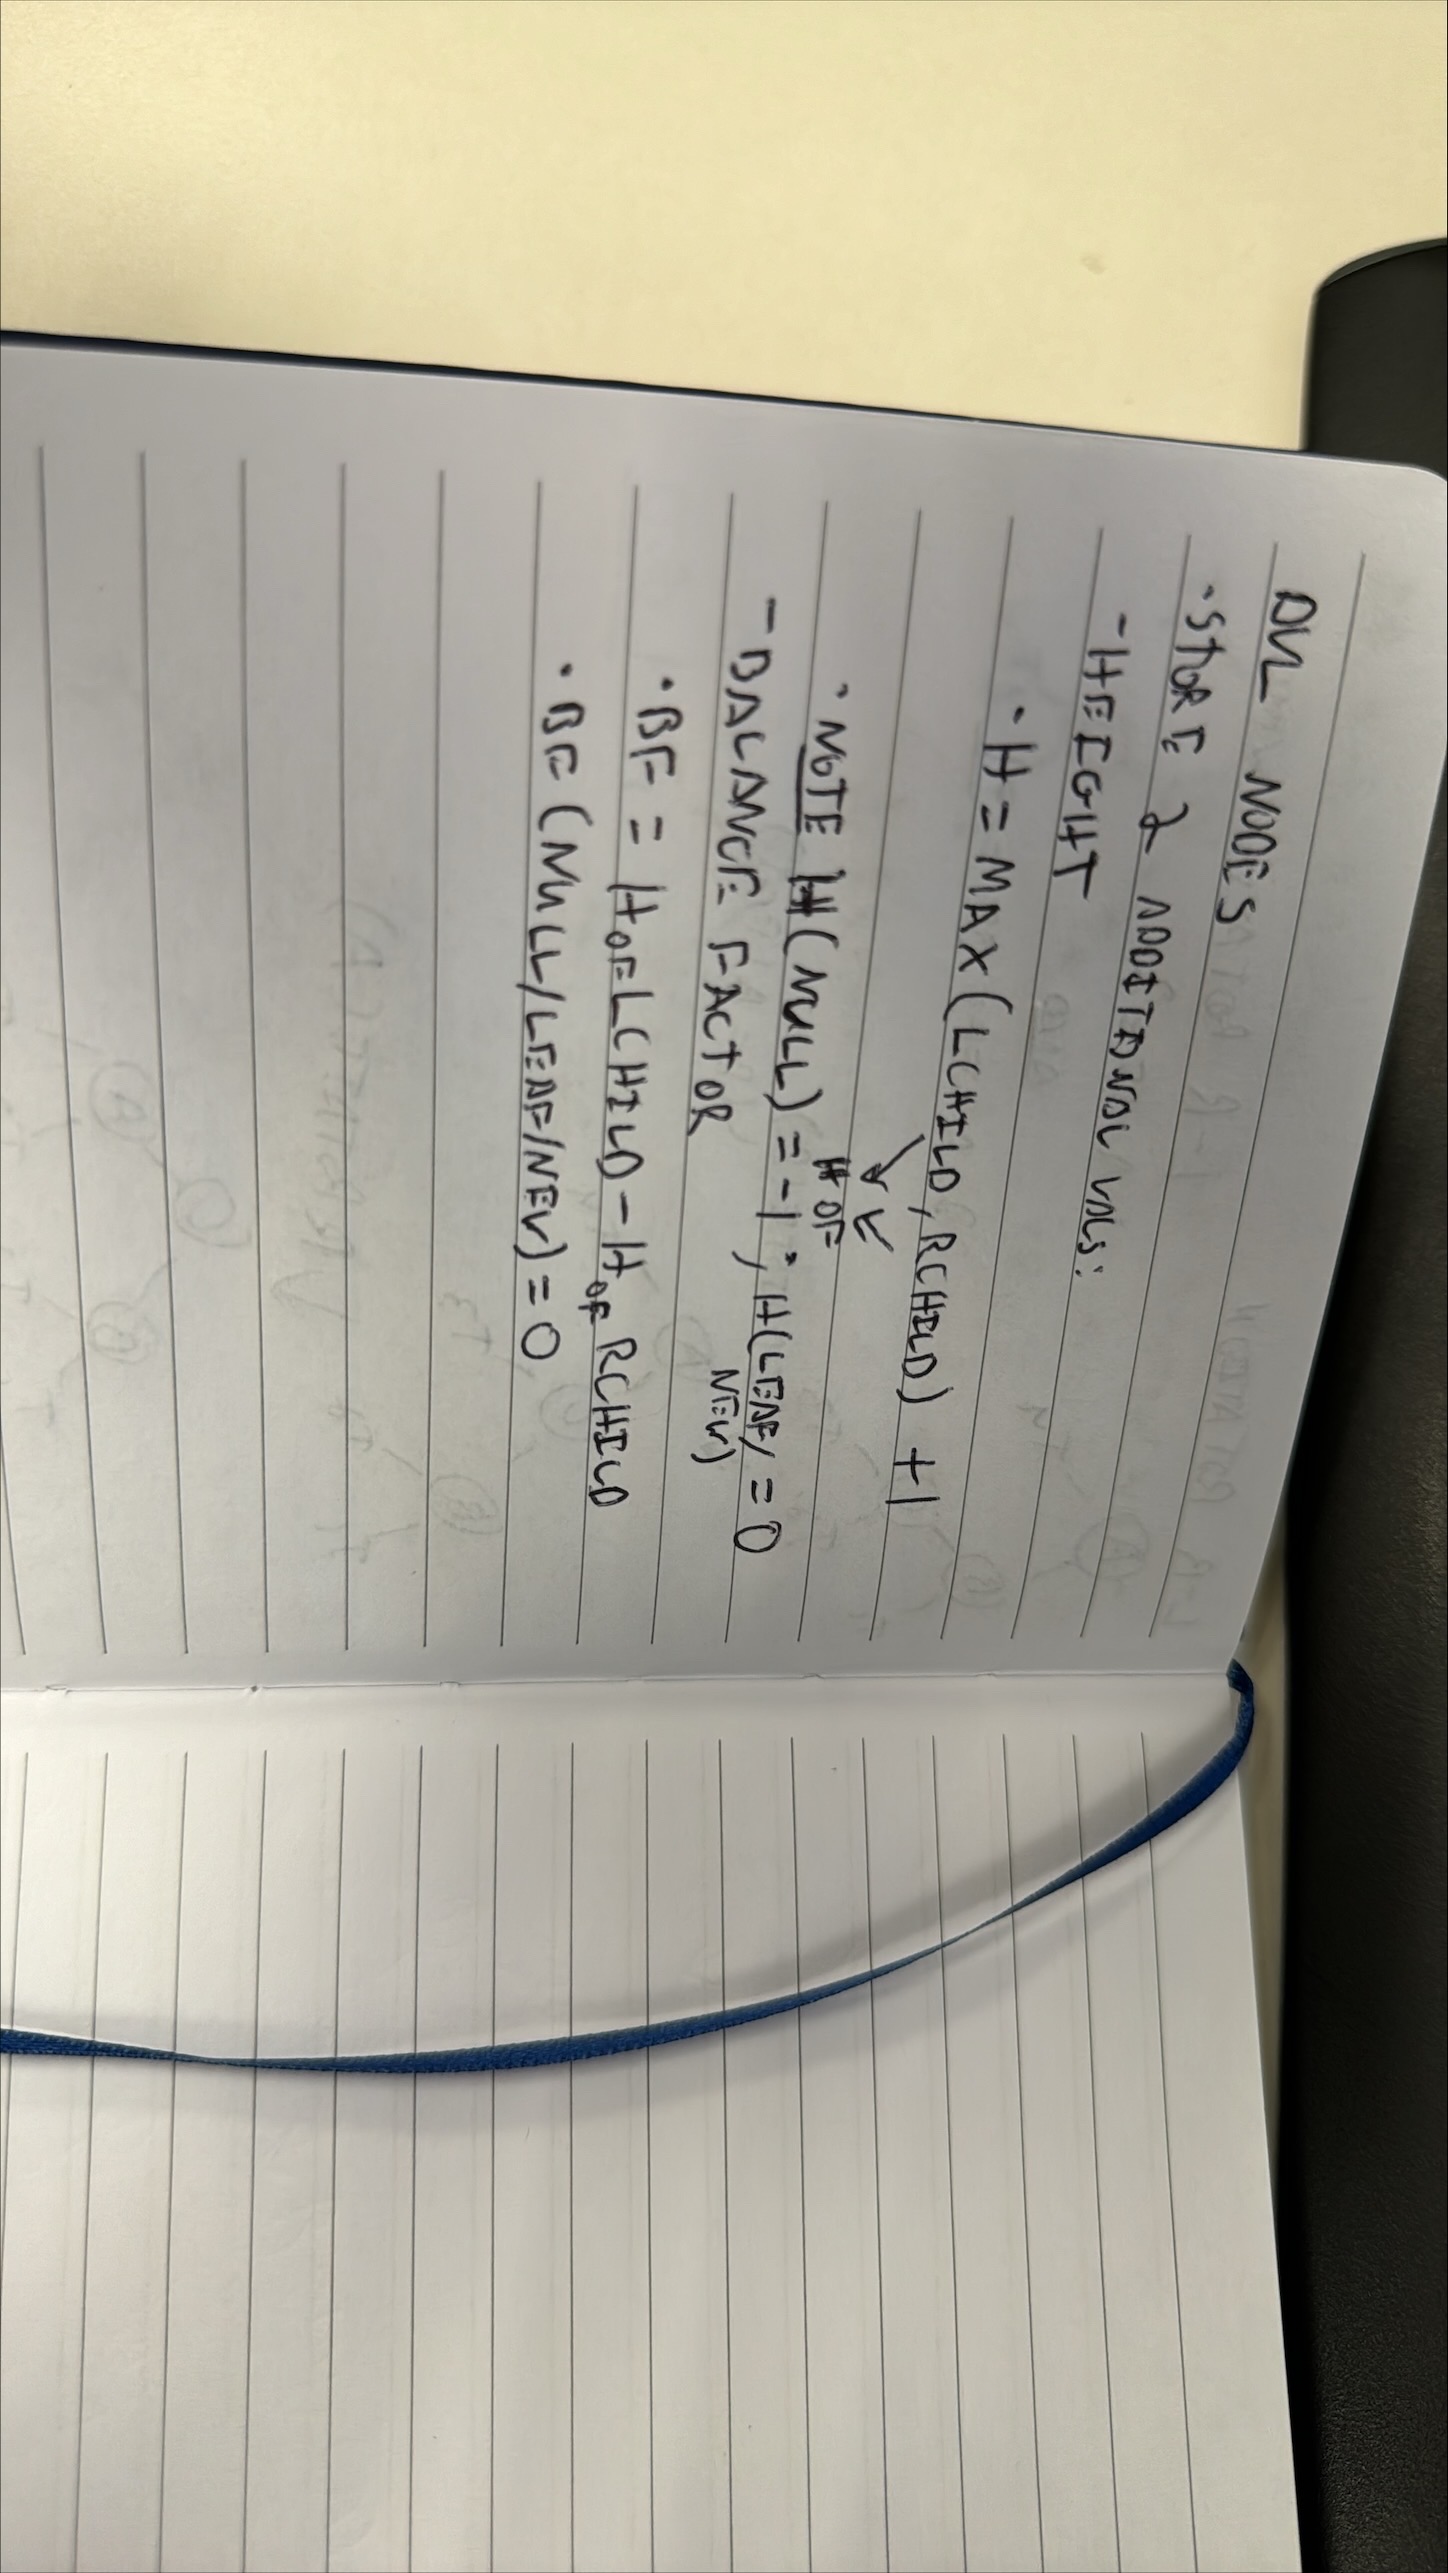 AVL NODES
·STORE 2 ADDITIONAL VALS:
-HEIGHT
·H = MAX(LCHILD, RCHILD) +1
H OF
·NOTE H(NULL) = -1; H(LEAF/ = 0
NEW)
-BALANCE FACTOR
·BF = H OF LCHILD - H OF RCHILD
·BF (NULL/LEAF/NEW) = 0